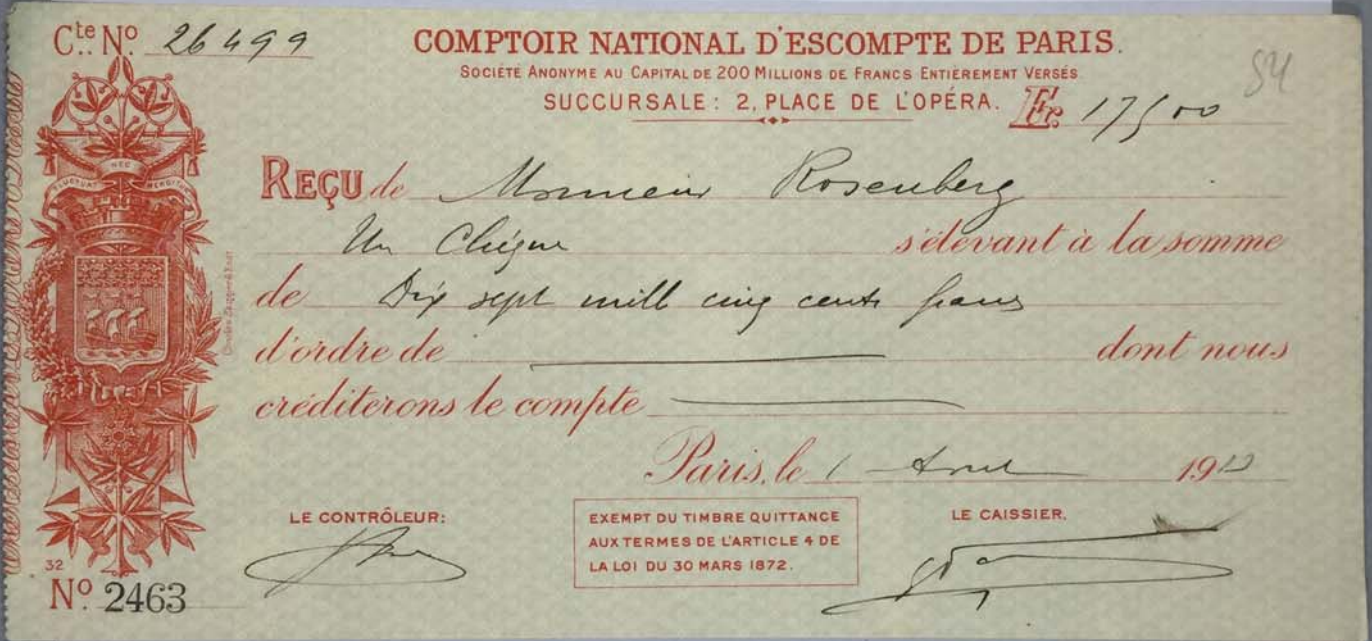 Cte No. 26499
COMPTOIR NATIONAL D'ESCOMPTE DE PARIS.
SOCIÉTÉ ANONYME AU CAPITAL DE 200 MILLIONS DE FRANCS ENTIÈREMENT VERSÉS
SUCCURSALE: 2, PLACE DE L'OPÉRA.
Fr. 17500
FLUCTUAT NEC MERGITUR
REÇU de Monsieur Rosenberg
Un Chèque s'élevant à la somme
de Dix sept mill cinq cents francs
d'ordre de dont nous
créditerons le compte
Paris, le 1 19
LE CONTRÔLEUR:
EXEMPT DU TIMBRE QUITTANCE
AUX TERMES DE L'ARTICLE 4 DE
LA LOI DU 30 MARS 1872.
LE CAISSIER.
32
No. 2463